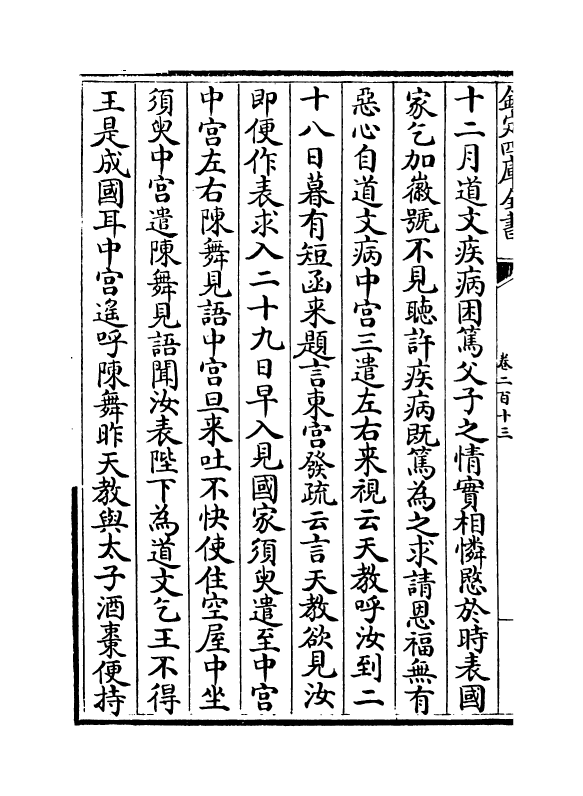 欽定四庫全書
卷二百十三
十二月道文疾病困篤父子之情實相憐愍於時表國
家乞加徽號不見聽許疾病既篤為之求請恩福無有
惡心自道文病中宫三遣左右来視云天教呼汝到二
十八日暮有短函来題言東宫發疏云言天教欲見汝
即便作表求入二十九日早入見國家須臾遣至中宫
中宫左右陳舞見語中宫旦来吐不快使住空屋中坐
須臾中宫遣陳舞見語聞汝表陛下為道文乞王不得
王是成國耳中宫遥呼陳舞昨天教與太子酒棗便持